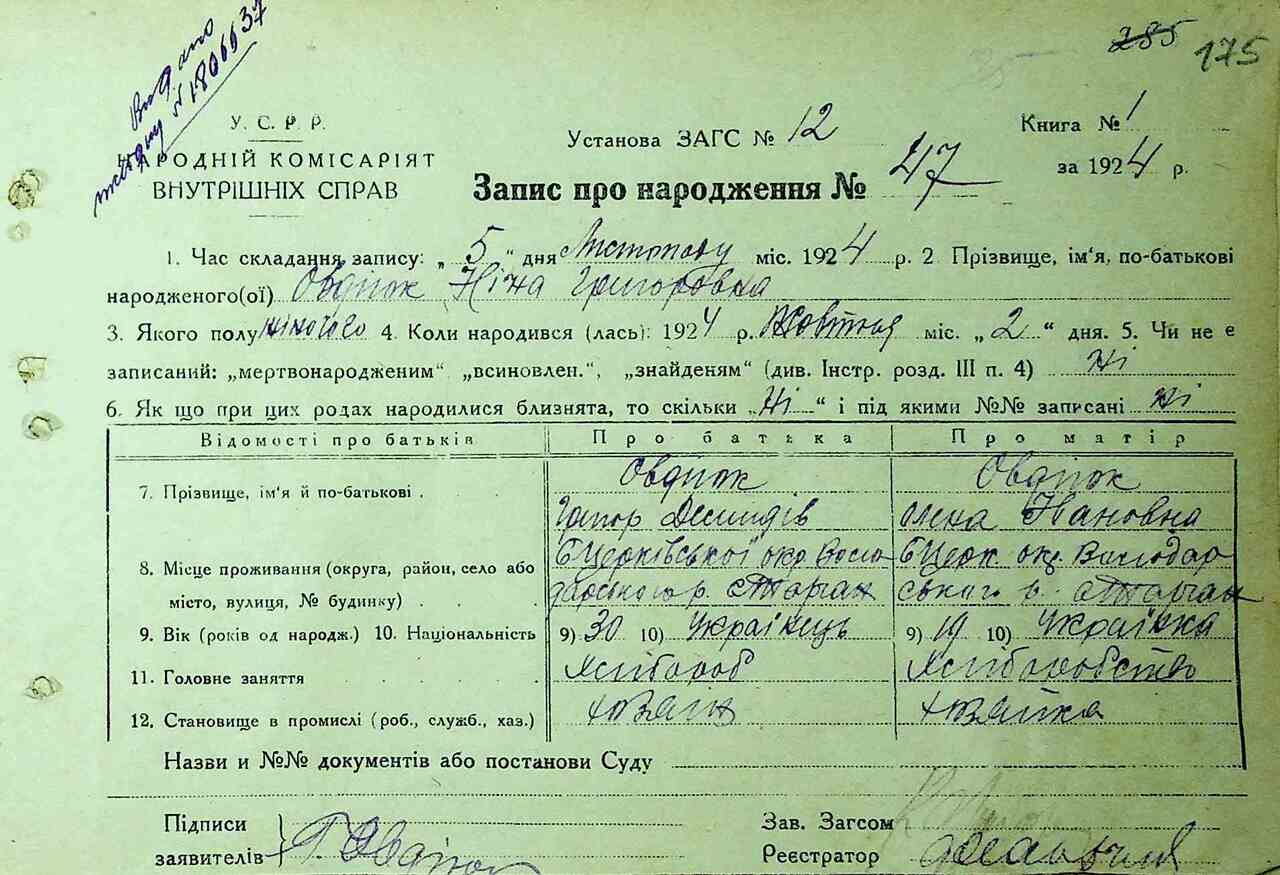 Видано
метрику № 1806637
285 175
У. С. Р. Р.
НАРОДНІЙ КОМІСАРІЯТ
ВНУТРІШНІХ СПРАВ
Установа ЗАГС № 12
Книга № 1
за 1924 р.
Запис про народження № 47
1. Час складання запису: „ 5 “ дня Листопаду міс. 1924 р. 2 Прізвище, ім'я, по-батькові
народженого(ої) Овдіюк Ніна Григоровна
3. Якого полу жіночого 4. Коли народився (лась): 1924 р. Жовтня міс. „ 2 “ дня. 5. Чи не є
записаний: „мертвонародженим“ „всиновлен.“, „знайденям“ (див. Інстр. розд. III п. 4) Ні
6. Як що при цих родах народилися близнята, то скільки „ Ні “ і під якими №№ записані Ні
Відомості про батьків Про батька Про матір
7. Прізвище, ім'я й по-батькові . Овдіюк Овдіюк
Григор Демидів Олена Івановна
8. Місце проживання (округа, район, село або Б Церківської окр. Воло- Б Церк окр Володар
місто, вулиця, № будинку) . . дарського р. с Тарган ського р. с Тарган
9. Вік (років од народж.) 10. Національність 9) 30 10) Українець 9) 19 10) Українка
11. Головне заняття Хлібороб Хліборобство
12. Становище в промислі (роб., служб., хаз.) Хазяїн Хазяйка
Назви и №№ документів або постанови Суду
Підписи
заявителів Г. Овдіюк
Зав. Загсом
Реєстратор